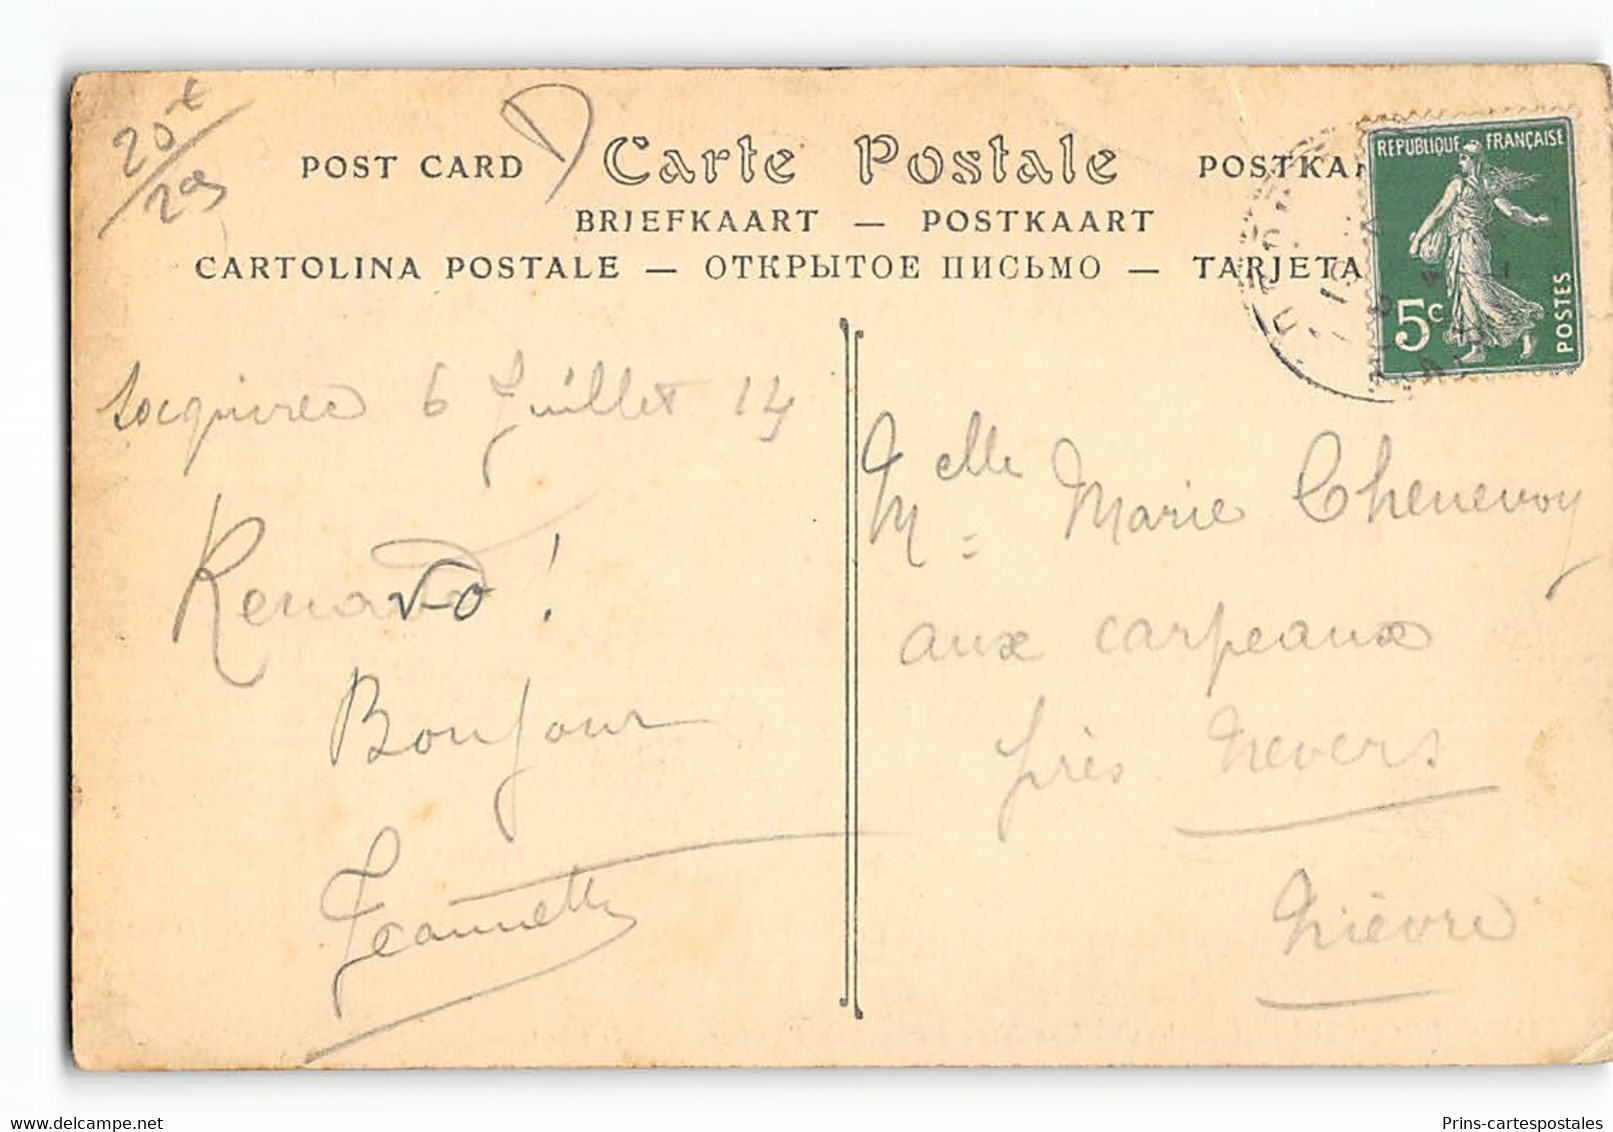 20 t
205
D
POST CARD Carte Postale POSTKA
BRIEFKAART — POSTKAART
CARTOLINA POSTALE — ОТКРЫТОЕ ПИСЬМО — TARJETA
REPUBLIQUE FRANÇAISE
5c
POSTES
Locquirec 6 Juillet 14
Renard !
Bonjour
Jeannette
Melle Marie Chenevoy
aux carpeaux
près Nevers
Nièvre
Prins-cartespostales